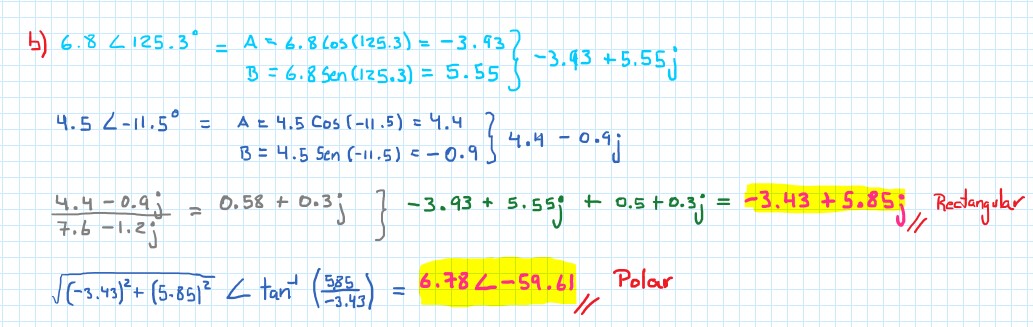 b) 6.8 ∠125.3° = A = 6.8 Cos(125.3) = -3.93 } -3.93 + 5.55j
B = 6.8 Sen(125.3) = 5.55
4.5 ∠-11.5° = A = 4.5 Cos(-11.5) = 4.4 } 4.4 - 0.9j
B = 4.5 Sen(-11.5) = -0.9
4.4 - 0.9j / 7.6 - 1.2j = 0.58 + 0.3j } -3.93 + 5.55j + 0.5 + 0.3j = -3.43 + 5.85j // Rectangular
√(-3.43)² + (5.85)² ∠ tan⁻¹ (585 / -3.43) = 6.78 ∠ -59.61 // Polar